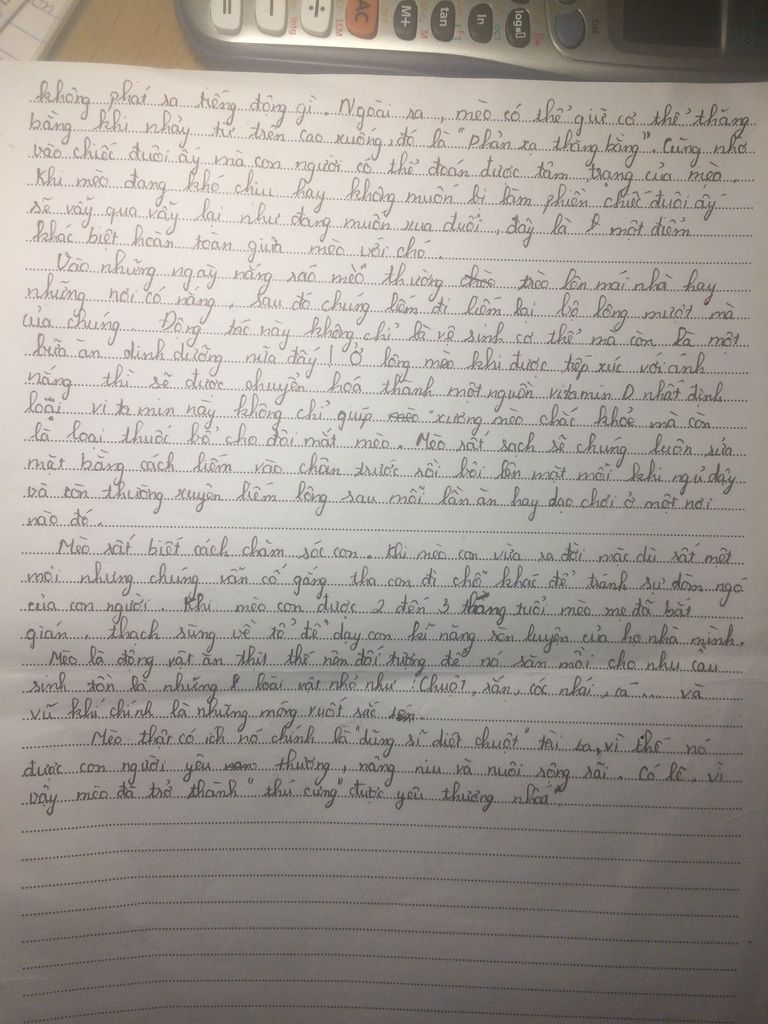 =
−
÷
AC
M+
tan
ln
log
ON
LCM
Intg
M
không phát ra tiếng động gì. Ngoài ra, mèo có thể giữ cơ thể thăng
bằng khi nhảy từ trên cao xuống, đó là "phản xạ thăng bằng". Cũng nhờ
vào chiếc đuôi ấy mà con người có thể đoán được tâm trạng của mèo.
Khi mèo đang khó chịu hay không muốn bị làm phiền chiếc đuôi ấy
sẽ vẫy qua vẫy lại như đang muốn xua đuổi, đây là một điểm
khác biệt hoàn toàn giữa mèo với chó.
Vào những ngày nắng ráo mèo thường trèo lên mái nhà hay
những nơi có nắng, sau đó chúng liếm đi liếm lại bộ lông mượt mà
của chúng. Động tác này không chỉ là vệ sinh cơ thể mà còn là một
bữa ăn dinh dưỡng nữa đấy! Ở lông mèo khi được tiếp xúc với ánh
nắng thì sẽ được chuyển hoá thành một nguồn vitamin D nhất định
loại vi ta min này không chỉ giúp xương mèo chắc khoẻ mà còn
là loại thuốc bổ cho đôi mắt mèo. Mèo rất sạch sẽ chúng luôn rửa
mặt bằng cách liếm vào chân trước rồi bôi lên mặt mỗi khi ngủ dậy
và còn thường xuyên liếm lông sau mỗi lần ăn hay dạo chơi ở một nơi
nào đó.
Mèo rất biết cách chăm sóc con. Khi mèo con vừa ra đời mặc dù rất mệt
mỏi nhưng chúng vẫn cố gắng tha con đi chỗ khác để tránh sự dòm ngó
của con người. Khi mèo con được 2 đến 3 tháng tuổi mèo mẹ đã bắt
gián, thạch sùng về tổ để dạy con kĩ năng săn luyện của họ nhà mình.
Mèo là động vật ăn thịt thế nên đối tượng để nó săn mồi cho nhu cầu
sinh tồn là những loài vật nhỏ như: Chuột, rắn, cóc nhái, cá... và
vũ khí chính là những móng vuốt sắc
Mèo thật có ích nó chính là "dũng sĩ diệt chuột" tài ba, vì thế nó
được con người yêu thương, nâng niu và nuôi rộng rãi. Có lẽ vì
vậy mèo đã trở thành "thú cưng" được yêu thương nhất.